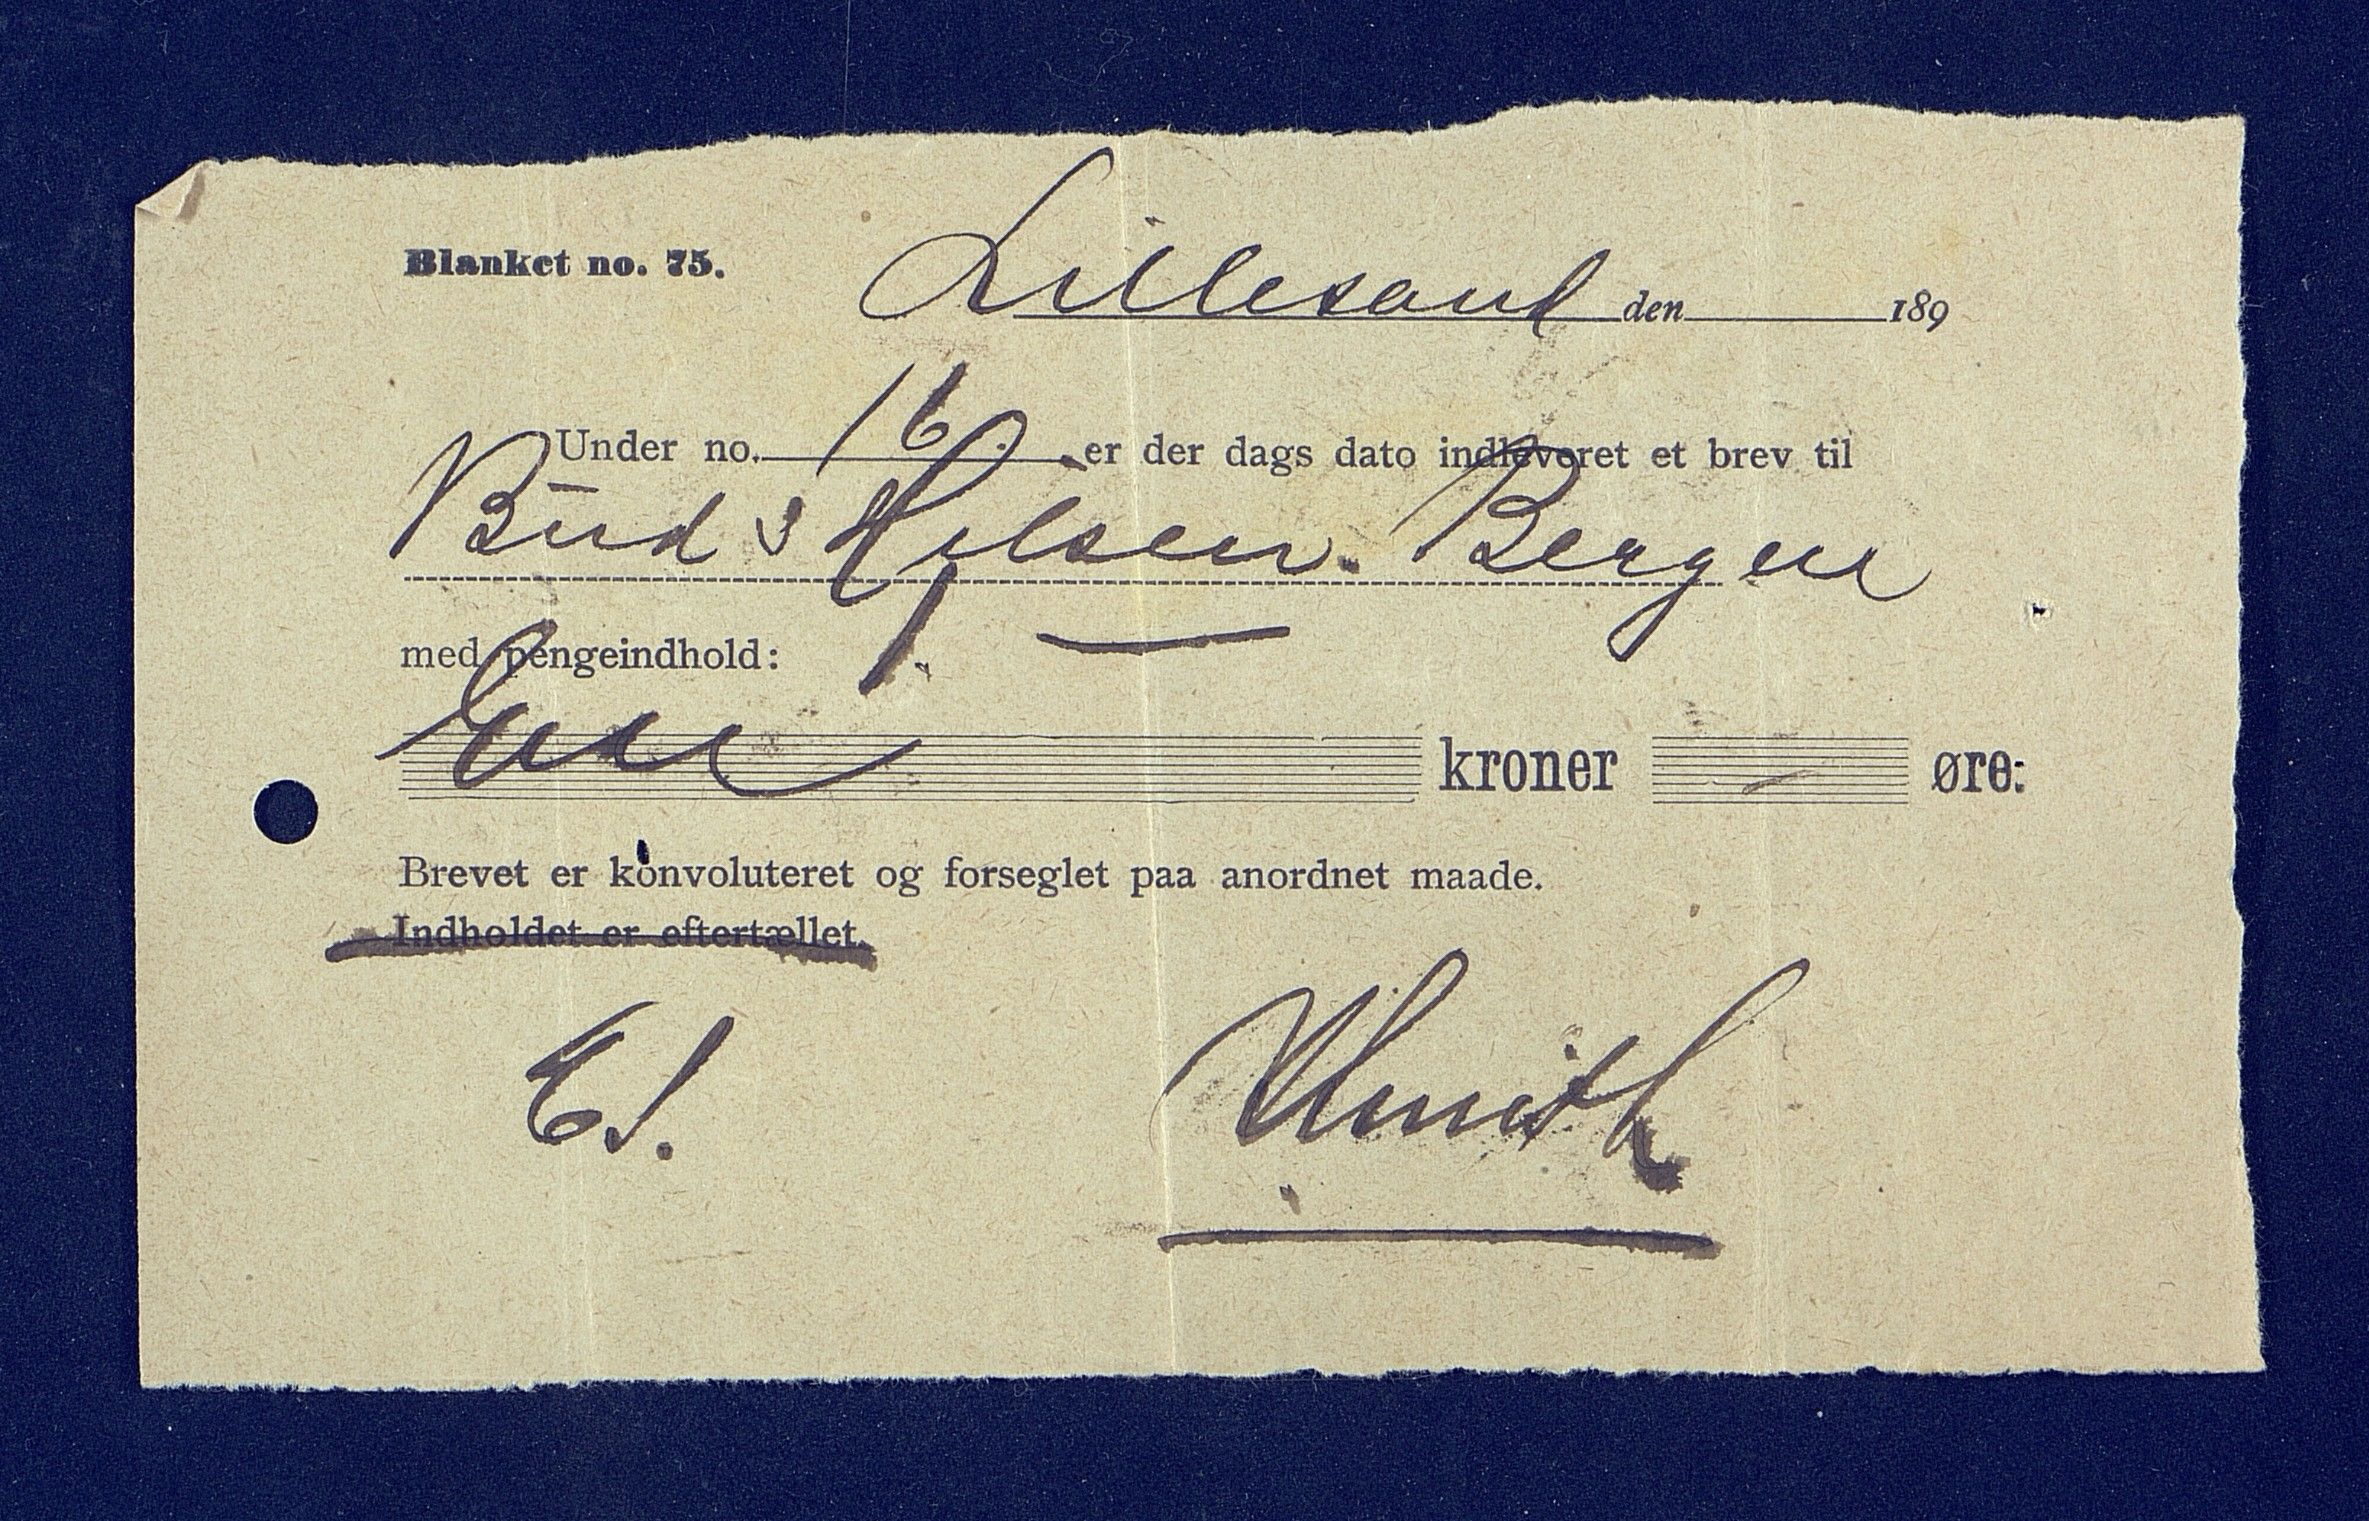 Blanket no. 75.
Lillesand den 189
Under no. 16. er der dags dato indleveret et brev til
& Bergen
med pengeindhold:
kroner - øre:
Brevet er konvoluteret og forseglet paa anordnet maade.
Indholdet er eftertællet.